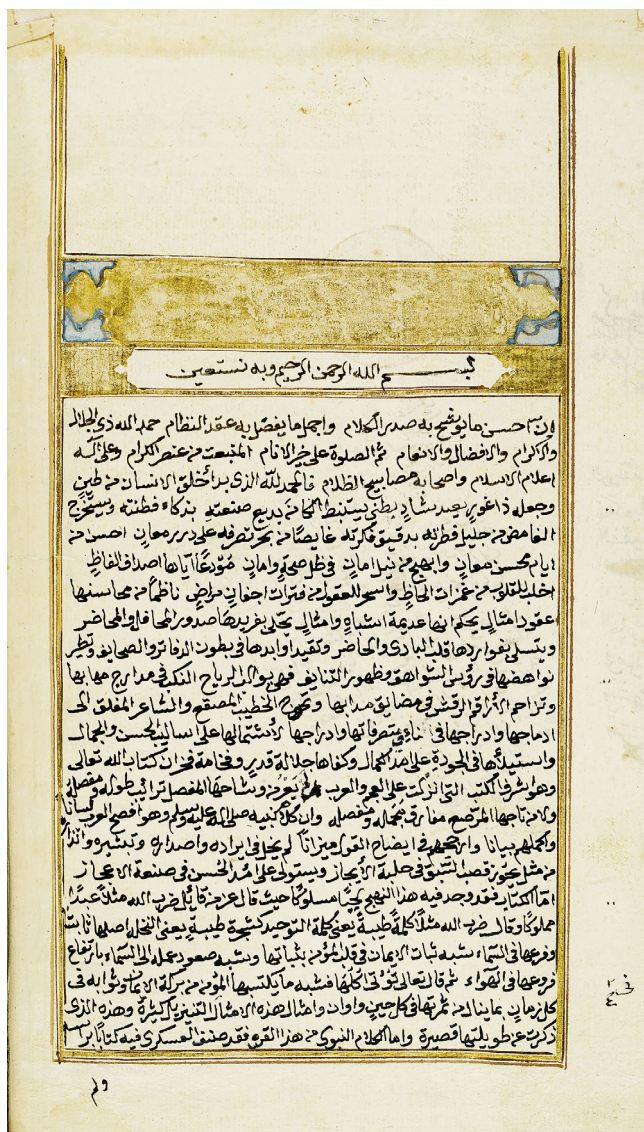 بسم الله الرحمن الرحيم وبه نستعين
ان احسن ما يوشح به صدر الكلام واجمل ما يفصل به عقد النظام حمد الله ذي الجلال
والاكرام والافضال والانعام ثم الصلوة على خير الانام المنبعث من عنصر الكرام وعلى آله
اعلام الاسلام واصحابه مصابيح الظلام فالحمد لله الذي بدأ خلق الانسان من طين
وجعله ذا غور بعيد وشاو بطين يستنبط الكامن من بديع صنعته بذكاء فطنته ويستخرج
الغامض من جليل فطرته بدقيق فكرته غايصا من بحر تصرفه على درر معان احسن من
ايام محسن معان وابهج من نيل امان في ظل صحة وامان مودعا اياها اصداف الفاظ
اخلب للقلوب من غمزات الحاظ واسحر للعقول من فترات اجفان مراض ناظما من محاسنها
عقود امثال يحكم انها عديمة اشباه وامثال يتحلى بفرايدها صدور المحافل والمحاضر
ويتسلى بفواردها قلب البادي والحاضر وتقيد اوابدها في بطون الدفاتر والصحايف وتطير
نواهضها في رؤس الشواهق وظهور التنايف فهي تواكب الرياح النكب في مدارج مهابها
وتزاحم الأراقم الرقش في مضايق مدابها وتحوج الخطيب المصقع والشاعر المفلق الى
ادماجها وادراجها في اثناء متصرفاتها وادراجها لاشتمالها على اساليب الحسن والجمال
واستيلائها في الجودة على امد الكمال وكفاها جلالة قدر وفخامة فخر ان كتاب الله تعالى
وهو اشرف الكتب التي انزلت على العجم والعرب لم يعر من وشاحها المفصل ترائب طواله ومفصله
ولا من تاجها المرصع مفارق مجمله ومفصله وان كلام نبيه صلى الله عليه وسلم وهو افصح العرب لسانا
واكملهم بيانا وارجحهم في ايضاح القول ميزانا لم يخل في ايراده واصداره وتبشيره وانذاره
من مثل يحوز قصب السبق في حلبة الايجاز ويستولي على امد الحسن في صنعة الاعجاز
اما الكتاب فقد وجد فيه هذا النهج لحبا مسلوكا حيث قال عز من قائل ضرب الله مثلا عبدا
مملوكا وقال ضرب الله مثلا كلمة طيبة يعني كلمة التوحيد كشجرة طيبة يعني النخلة اصلها ثابت
وفرعها في السماء شبه ثبات الايمان في قلب المؤمن بثباتها وشبه صعود عمله الى السماء بارتفاع
فروعها في الهواء ثم قال تعالى تؤتي اكلها فشبه ما يكتسبها المؤمن من بركة الايمان وثوابه في
كل زمان بما ينال من ثمرتها في كل حين واوان وامثال هذه الامثال في التنزيل كثيرة وهذه الذي
ذكرت عن طويلتها قصيرة واما الكلام النبوي من هذا القري فقد صنف العسكري فيه كتابا براسه
ولم